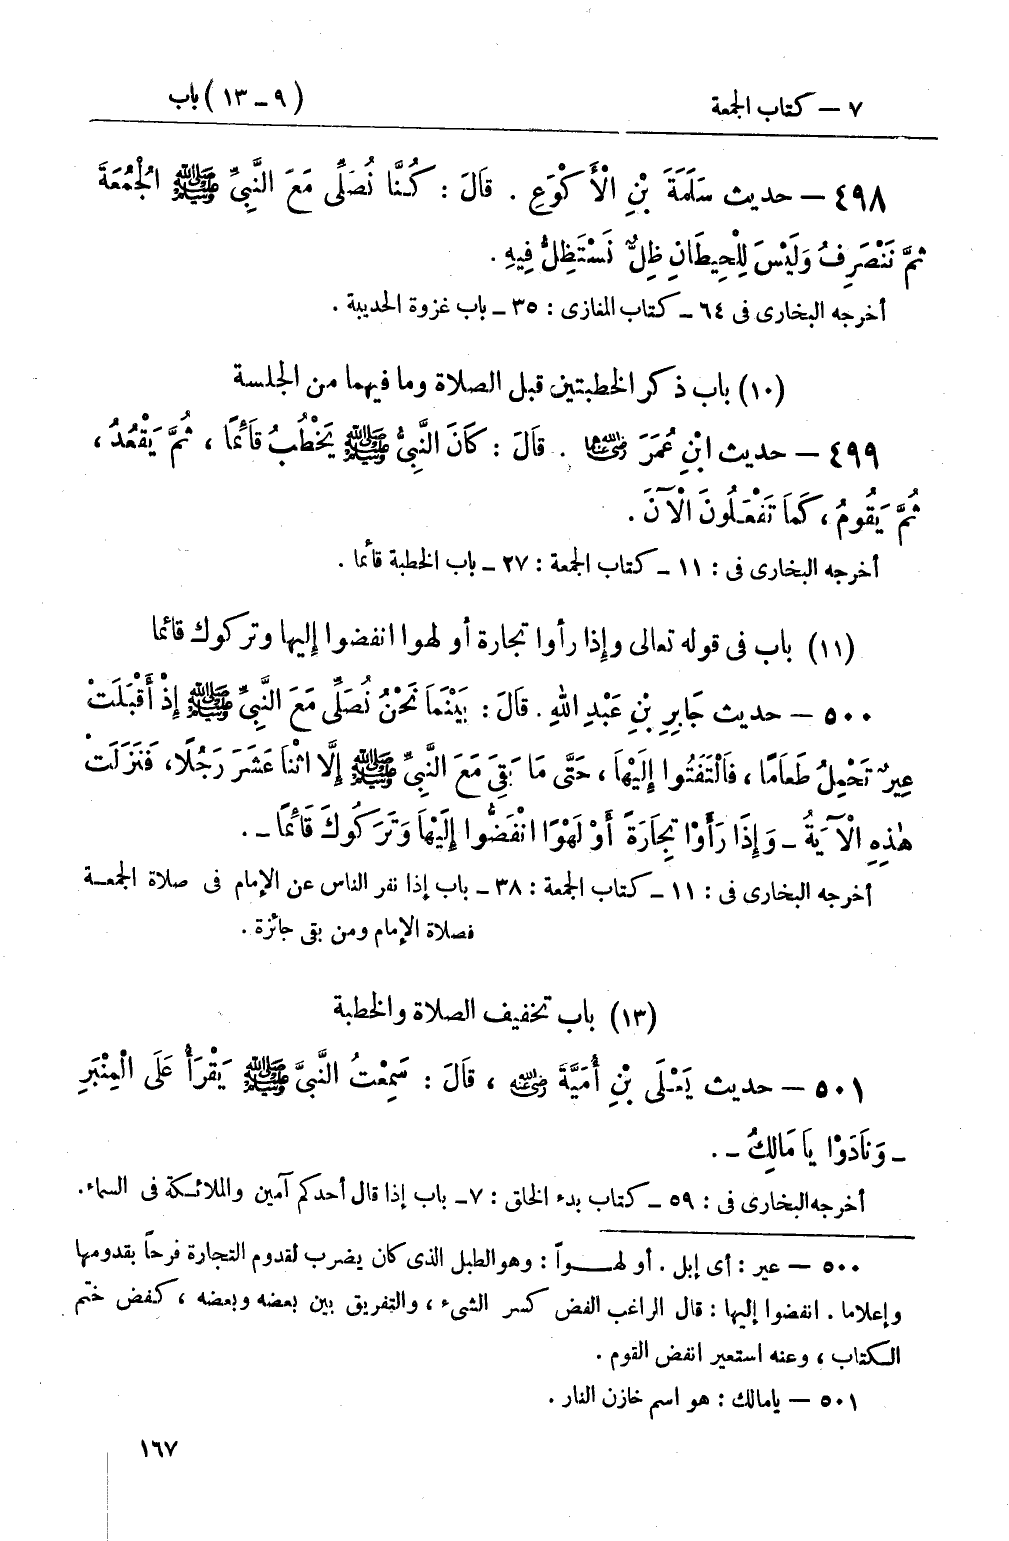 ٧ — كتاب الجمعة (٩ – ١٣) باب
٤٩٨ — حديث سَلَمَةَ بْنِ الْأَكْوَعِ . قَالَ : كُنَّا نُصَلِّى مَعَ النَّبِيِّ ﷺ الْجُمُعَةَ
ثُمَّ نَنْصَرِفُ وَلَيْسَ لِلْحِيطَانِ ظِلٌّ نَسْتَظِلُّ فِيهِ .
أخرجه البخارى فى ٦٤ – كتاب المغازى : ٣٥ – باب غزوة الحديبة .
(١٠) باب ذكر الخطبتين قبل الصلاة وما فيهما من الجلسة
٤٩٩ — حديث ابْنِ عُمَرَ رضي الله عنهما . قَالَ : كَانَ النَّبِيُّ ﷺ يَخْطُبُ قَائِمًا ، ثُمَّ يَقْعُدُ ،
ثُمَّ يَقُومُ ، كَمَا تَفْعَلُونَ الْآنَ .
أخرجه البخارى فى : ١١ – كتاب الجمعة : ٢٧ – باب الخطبة قائما .
(١١) باب فى قوله تعالى وإذا رأوا تجارة أو لهوا انفضوا إليها وتركوك قائما
٥٠٠ — حديث جَابِرِ بْنِ عَبْدِ اللهِ . قَالَ : بَيْنَمَا نَحْنُ نُصَلِّى مَعَ النَّبِيِّ ﷺ إِذْ أَقْبَلَتْ
عِيرٌ تَحْمِلُ طَعَامًا ، فَالْتَفَتُوا إِلَيْهَا ، حَتَّى مَا بَقِىَ مَعَ النَّبِيِّ ﷺ إِلَّا اثْنَا عَشَرَ رَجُلًا ، فَنَزَلَتْ
هٰذِهِ الْآيَةُ – وَإِذَا رَأَوْا تِجَارَةً أَوْ لَهْوًا انْفَضُّوا إِلَيْهَا وَتَرَكُوكَ قَائِمًا – .
أخرجه البخارى فى : ١١ – كتاب الجمعة : ٣٨ – باب إذا نفر الناس عن الإمام فى صلاة الجمعة
فصلاة الإمام ومن بقى جائزة .
(١٣) باب تخفيف الصلاة والخطبة
٥٠١ — حديث يَعْلَى بْنِ أُمَيَّةَ رضي الله عنه ، قَالَ : سَمِعْتُ النَّبِيَّ ﷺ يَقْرَأُ عَلَى الْمِنْبَرِ
– وَنَادَوْا يَا مَالِكُ – .
أخرجه البخارى فى : ٥٩ – كتاب بدء الخلق : ٧ – باب إذا قال أحدكم آمين والملائكة فى السماء .
٥٠٠ — عير : أى إبل . أو لهواً : وهو الطبل الذى كان يضرب لقدوم التجارة فرحاً بقدومها
وإعلاما . انفضوا إليها : قال الراغب الفض كسر الشىء ، والتفريق بين بعضه وبعضه ، كفض ختم
الكتاب ، وعنه استعير انفض القوم .
٥٠١ — يامالك : هو اسم خازن النار .
١٦٧